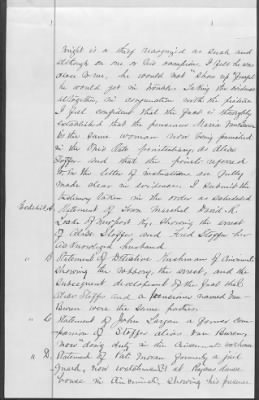 Wright is a thief recognized as such and
although on one or two occasions I felt he was
close to me, he would not "show up" if
he would get in trouble. Taking the evidence
altogether, in conjunction with the picture
I feel confident that the fact is thoroughly
established that the pensioner Maria McCann
is the same woman now being punished
in the Ohio State penitentiary as Alice
Stoffer and that the points referred
to in the letter of instructions are fully
made clear in evidence. I submit the
testimony taken in the order as scheduled
Exhibit A. Statement of Town Marshal David R.
of Newport Ky. Showing the arrest
of Alice Stoffer and Fred Stoffer her
husband
" B Statement of Detective of Cincinnati
Showing the robbery, the arrest, and the
subsequent development of the fact that
Alice Stoffer and a pensioner named Van
Buren were the same parties.
" C Statement of John a former
companion of Stoffer alias Van Buren,
now doing duty in the Cincinnati workhouse
" D. Statement of Pat Moran formerly a jail
guard, now at dance
house in Cincinnati, showing his